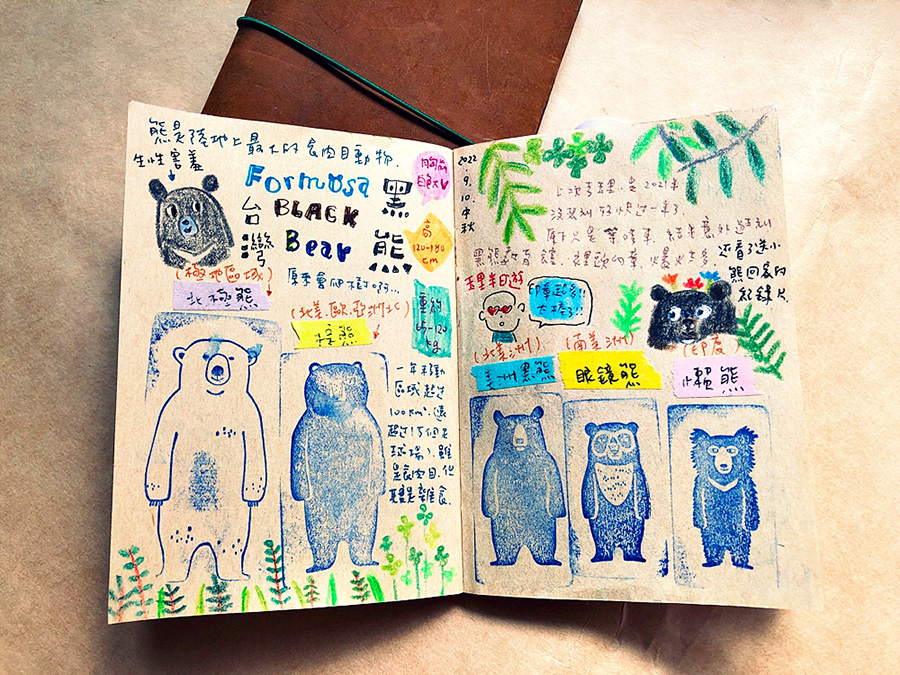 熊是陸地上最大的食肉目動物.
生性害羞
Formosa
BLACK
Bear
台灣
黑熊
胸前
白色V
高
120-180
cm
重約
65-120
kg
原來會爬樹啊...
(極地區域)
北極熊
(北美.歐.亞洲北)
棕熊
一年移動
區域超過
100km².(遠
超過1萬個足
球場).雖
是食肉目.但
其實是雜食.
2022
9.
10.
中秋
上次來玉里.是2021年
沒想到好快過一年了.
原本只是等時車.結果意外遊到
黑熊教育館.裡頭的章.爆炸多.
還看了送小
熊回家的
紀錄片
玉里半日遊
印章超多!!
太棒了!!
(北美洲)
美洲黑熊
(南美洲)
眼鏡熊
(印度)
懶熊